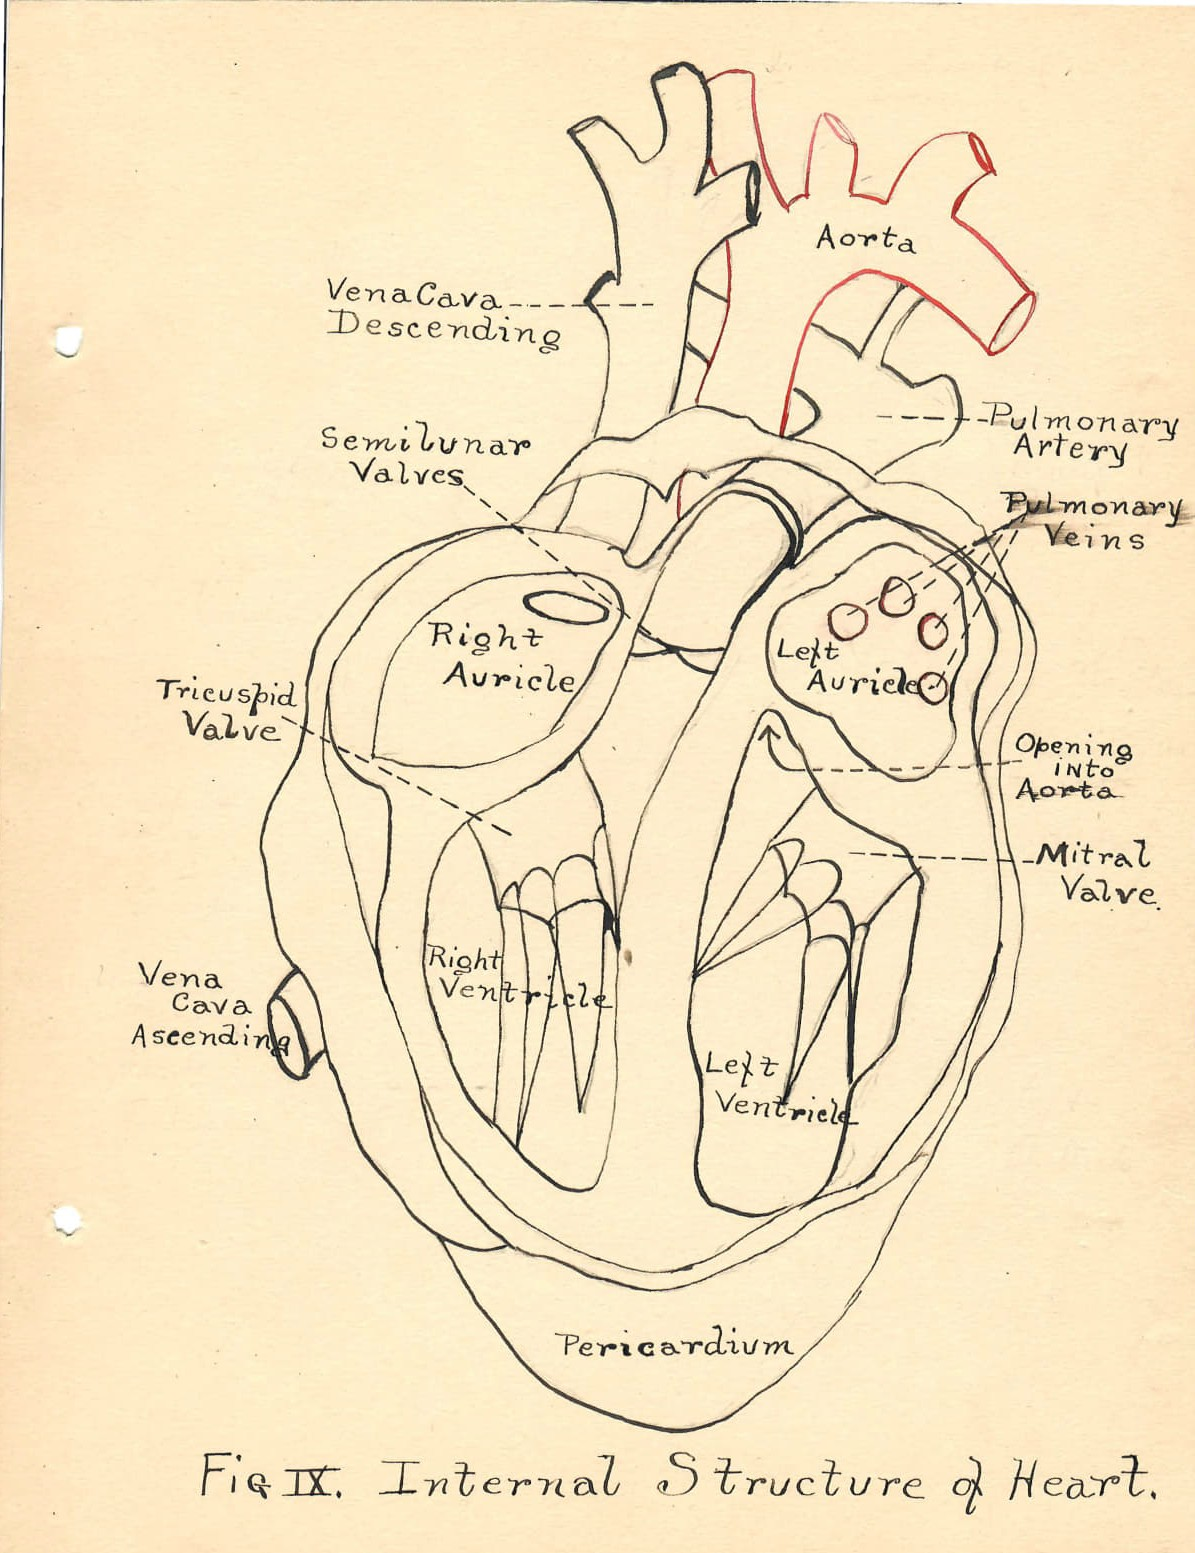 Aorta
Vena Cava
Descending
Pulmonary
Artery
Semilunar
Valves
Pulmonary
Veins
Right
Auricle
Left
Auricle
Tricuspid
Valve
Opening
into
Aorta
Mitral
Valve.
Right
Ventricle
Vena
Cava
Ascending
Left
Ventricle
Pericardium
Fig IX. Internal Structure of Heart.